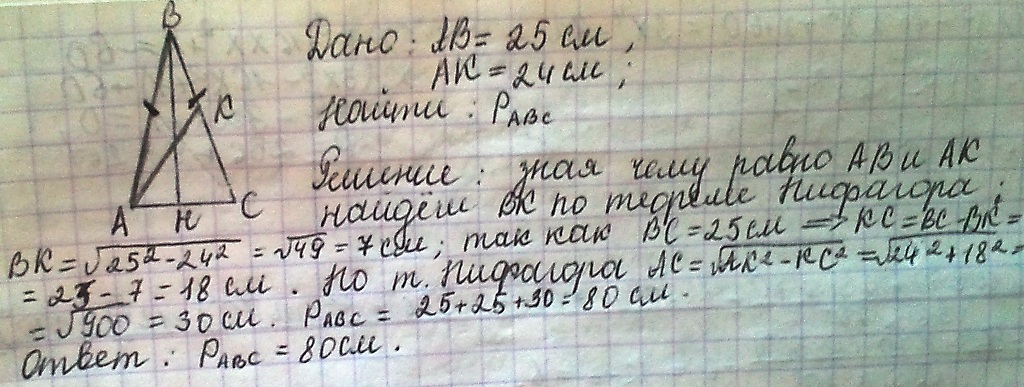 B
K
A H C
Дано: AB = 25 см,
AK = 24 см;
Найти: P_ABC
Решение: зная чему равно AB и AK
найдём BK по теореме Пифагора;
BK = √25² - 24² = √49 = 7 см; так как BC = 25 см => KC = BC - BK =
= 25 - 7 = 18 см. По т. Пифагора AC = √AK² - KC² = √24² + 18² =
= √900 = 30 см. P_ABC = 25 + 25 + 30 = 80 см.
Ответ: P_ABC = 80 см.